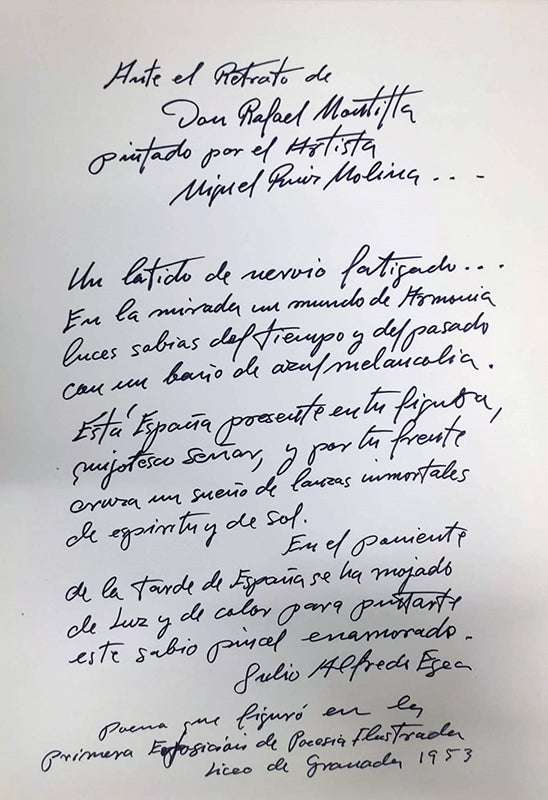 Ante el Retrato de
Don Rafael Montilla
pintado por el Artista
Miguel Ruiz Molina . . .
Un latido de nervio fatigado . . .
En la mirada un mundo de Armonia
luces sabias del tiempo y del pasado
con un baño de azul melancolia.
Está España presente en tu figura,
quijotesco Señor, y por tu frente
cruza un sueño de lanzas inmortales
de espiritu y de sol.
En el poniente
de la tarde de España se ha mojado
de Luz y de color para pintarte
este sabio pincel enamorado.
Julio Alfredo Egea
poema que figuró en la
primera Exposición de Poesia Ilustrada
Liceo de Granada 1953